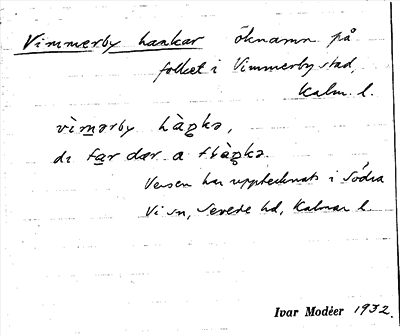 Vimmerby hankar öknamn på
folket i Vimmerby stad,
Kalm. l.
vìmərby hàŋkə,
di far dær a
Versen har upptecknats i Södra
Vi sn, Sevede hd, Kalmar l.
Ivar Modéer 1932.